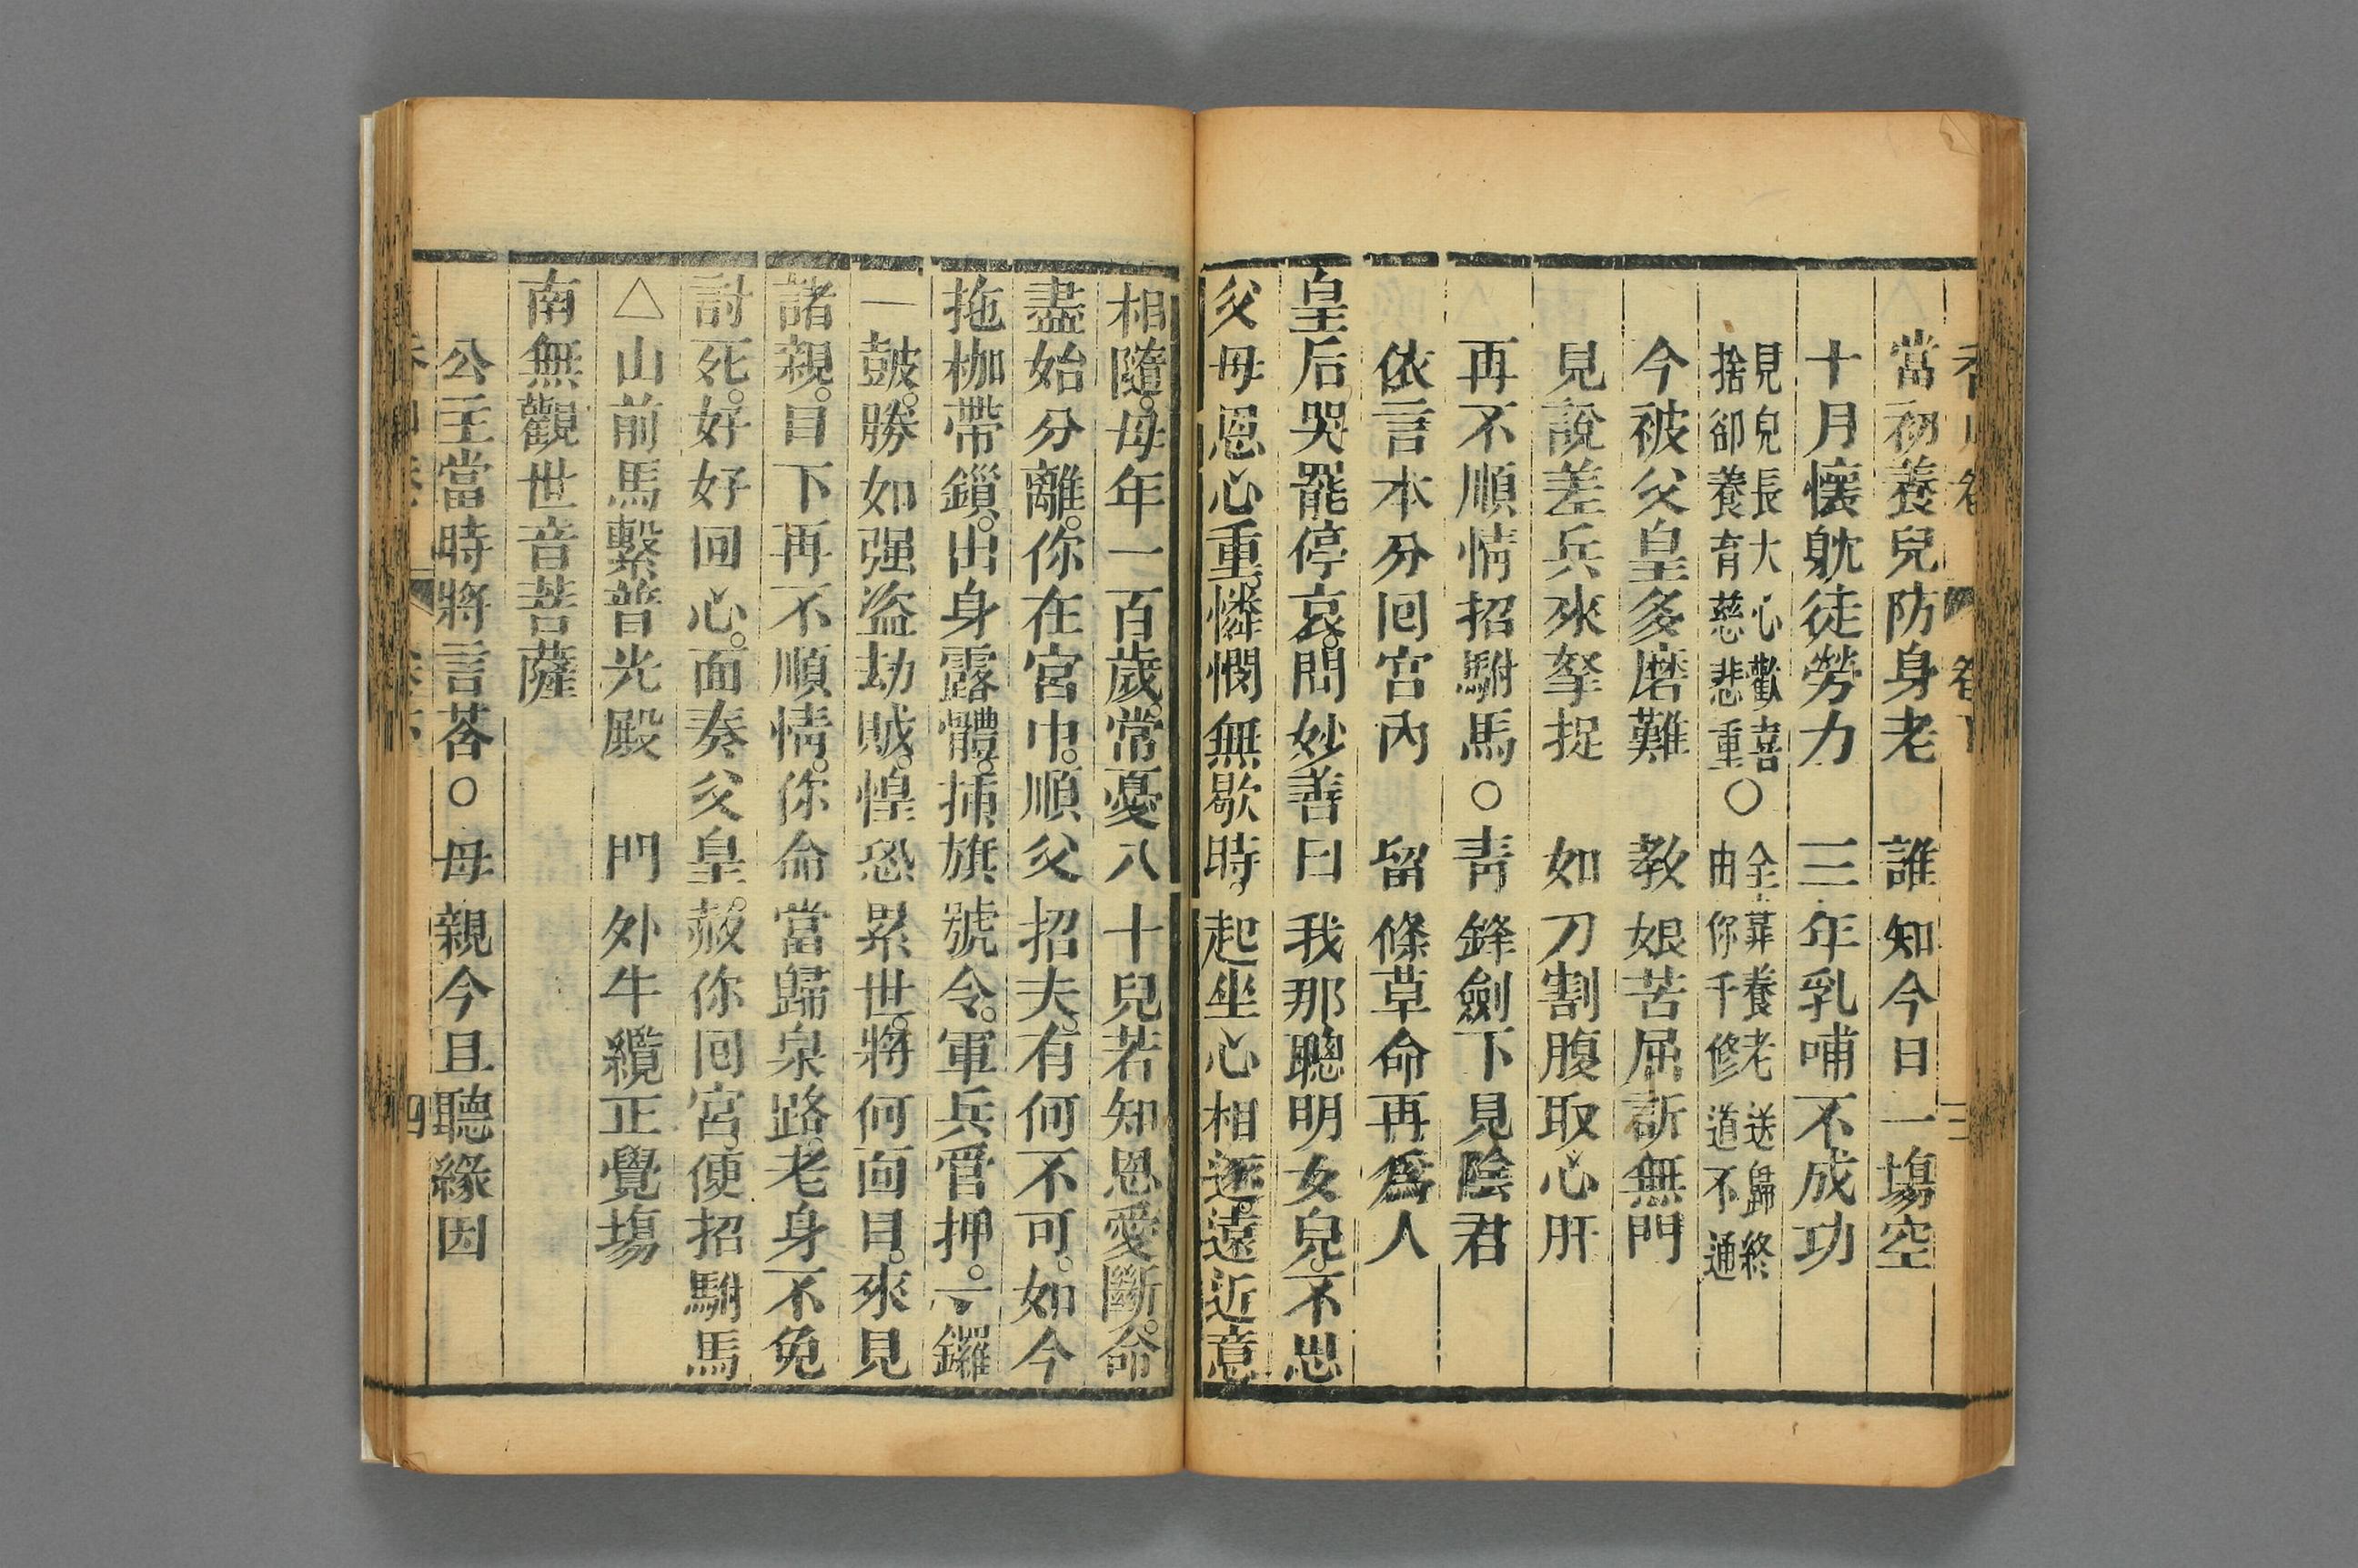 當初養兒防身老　誰知今日一塲空
十月懷躭徒勞力　三年乳哺不成功
見兒長大心歡喜　全靠養老送歸終
捨卻養育慈悲重〇由你千修道不通
今被父皇多磨難　教娘苦屈訴無門
見說差兵來拏捉　如刀割腹取心肝
再不順情招駙馬〇靑鋒劍下見陰君
依言本分囘宫內　留條草命再爲人
皇后哭罷停哀。問妙善曰我那聰明女兒。不思
父母恩心重。憐憫無歇時。起坐心相逐。遠近意
相隨。母年一百歲。常憂八十兒若知恩愛斷。命
盡始分離。你在宮中。順父招夫。有何不可。如今
拖枷帶鎖。出身露體。插旗號令。軍兵管押。一鑼
一皷。勝如强盜劫賊。惶恐累世。將何面目。來見
諸親。目下再不順情。你命當歸泉路。老身不免
討死。好好囘心。面奏父皇。赦你囘宫。便招駙馬
△山前馬繫普光殿　門外牛纜正覺塲
南無觀世音菩薩
公主當時將言荅〇母親今且聽緣因